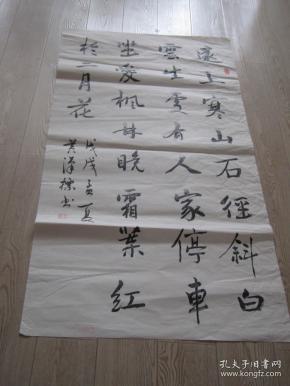 遠上寒山石徑斜白
雲生處有人家停車
坐愛楓林晚霜葉紅
於二月花
戊戌孟夏
孔夫子旧书网